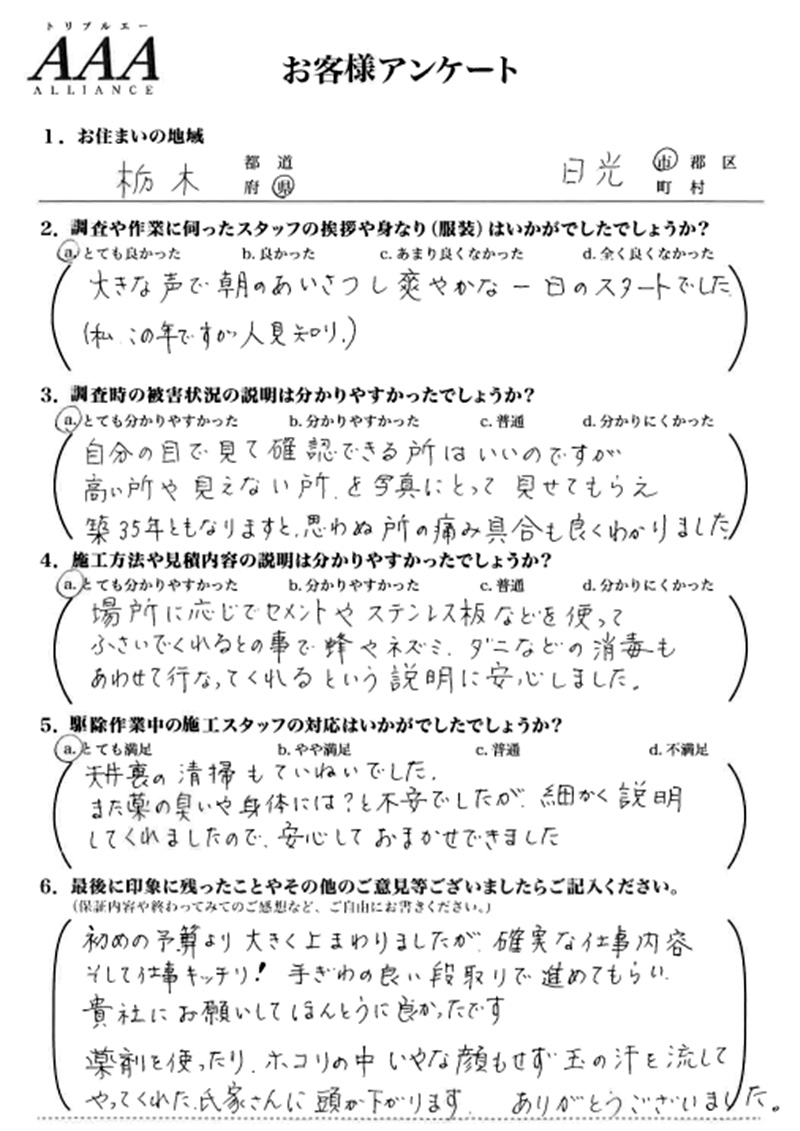 トリプルエー
AAA
ALLIANCE
お客様アンケート
1．お住まいの地域
栃木 都 道 府 県 日光 市 郡 区 町 村
2．調査や作業に伺ったスタッフの挨拶や身なり（服装）はいかがでしたでしょうか？
a. とても良かった b. 良かった c. あまり良くなかった d. 全く良くなかった
大きな声で朝のあいさつし爽やかな一日のスタートでした
(私、この年ですが人見知り。)
3．調査時の被害状況の説明は分かりやすかったでしょうか？
a. とても分かりやすかった b. 分かりやすかった c. 普通 d. 分かりにくかった
自分の目で見て確認できる所はいいのですが
高い所や見えない所、を写真にとって見せてもらえ
築35年ともなりますと、思わぬ所の痛み具合も良くわかりました。
4．施工方法や見積内容の説明は分かりやすかったでしょうか？
a. とても分かりやすかった b. 分かりやすかった c. 普通 d. 分かりにくかった
場所に応じてセメントやステンレス板などを使って
ふさいでくれるとの事で蜂やネズミ、ダニなどの消毒も
あわせて行なってくれるという説明に安心しました。
5．駆除作業中の施工スタッフの対応はいかがでしたでしょうか？
a. とても満足 b. やや満足 c. 普通 d. 不満足
天井裏の清掃もていねいでした。
また薬の臭いや身体には？と不安でしたが、細かく説明
してくれましたので、安心しておまかせできました
6．最後に印象に残ったことやその他のご意見等ございましたらご記入ください。
（保証内容や終わってみてのご感想など、ご自由にお書きください。）
初めの予算より大きく上まわりましたが、確実な仕事内容
そして仕事キッチリ！手ぎわの良い段取りで進めてもらい、
貴社にお願いしてほんとうに良かったです
薬剤を使ったり、ホコリの中いやな顔もせず玉の汗を流して
やってくれた、氏家さんに頭が下がります。 ありがとうございました。